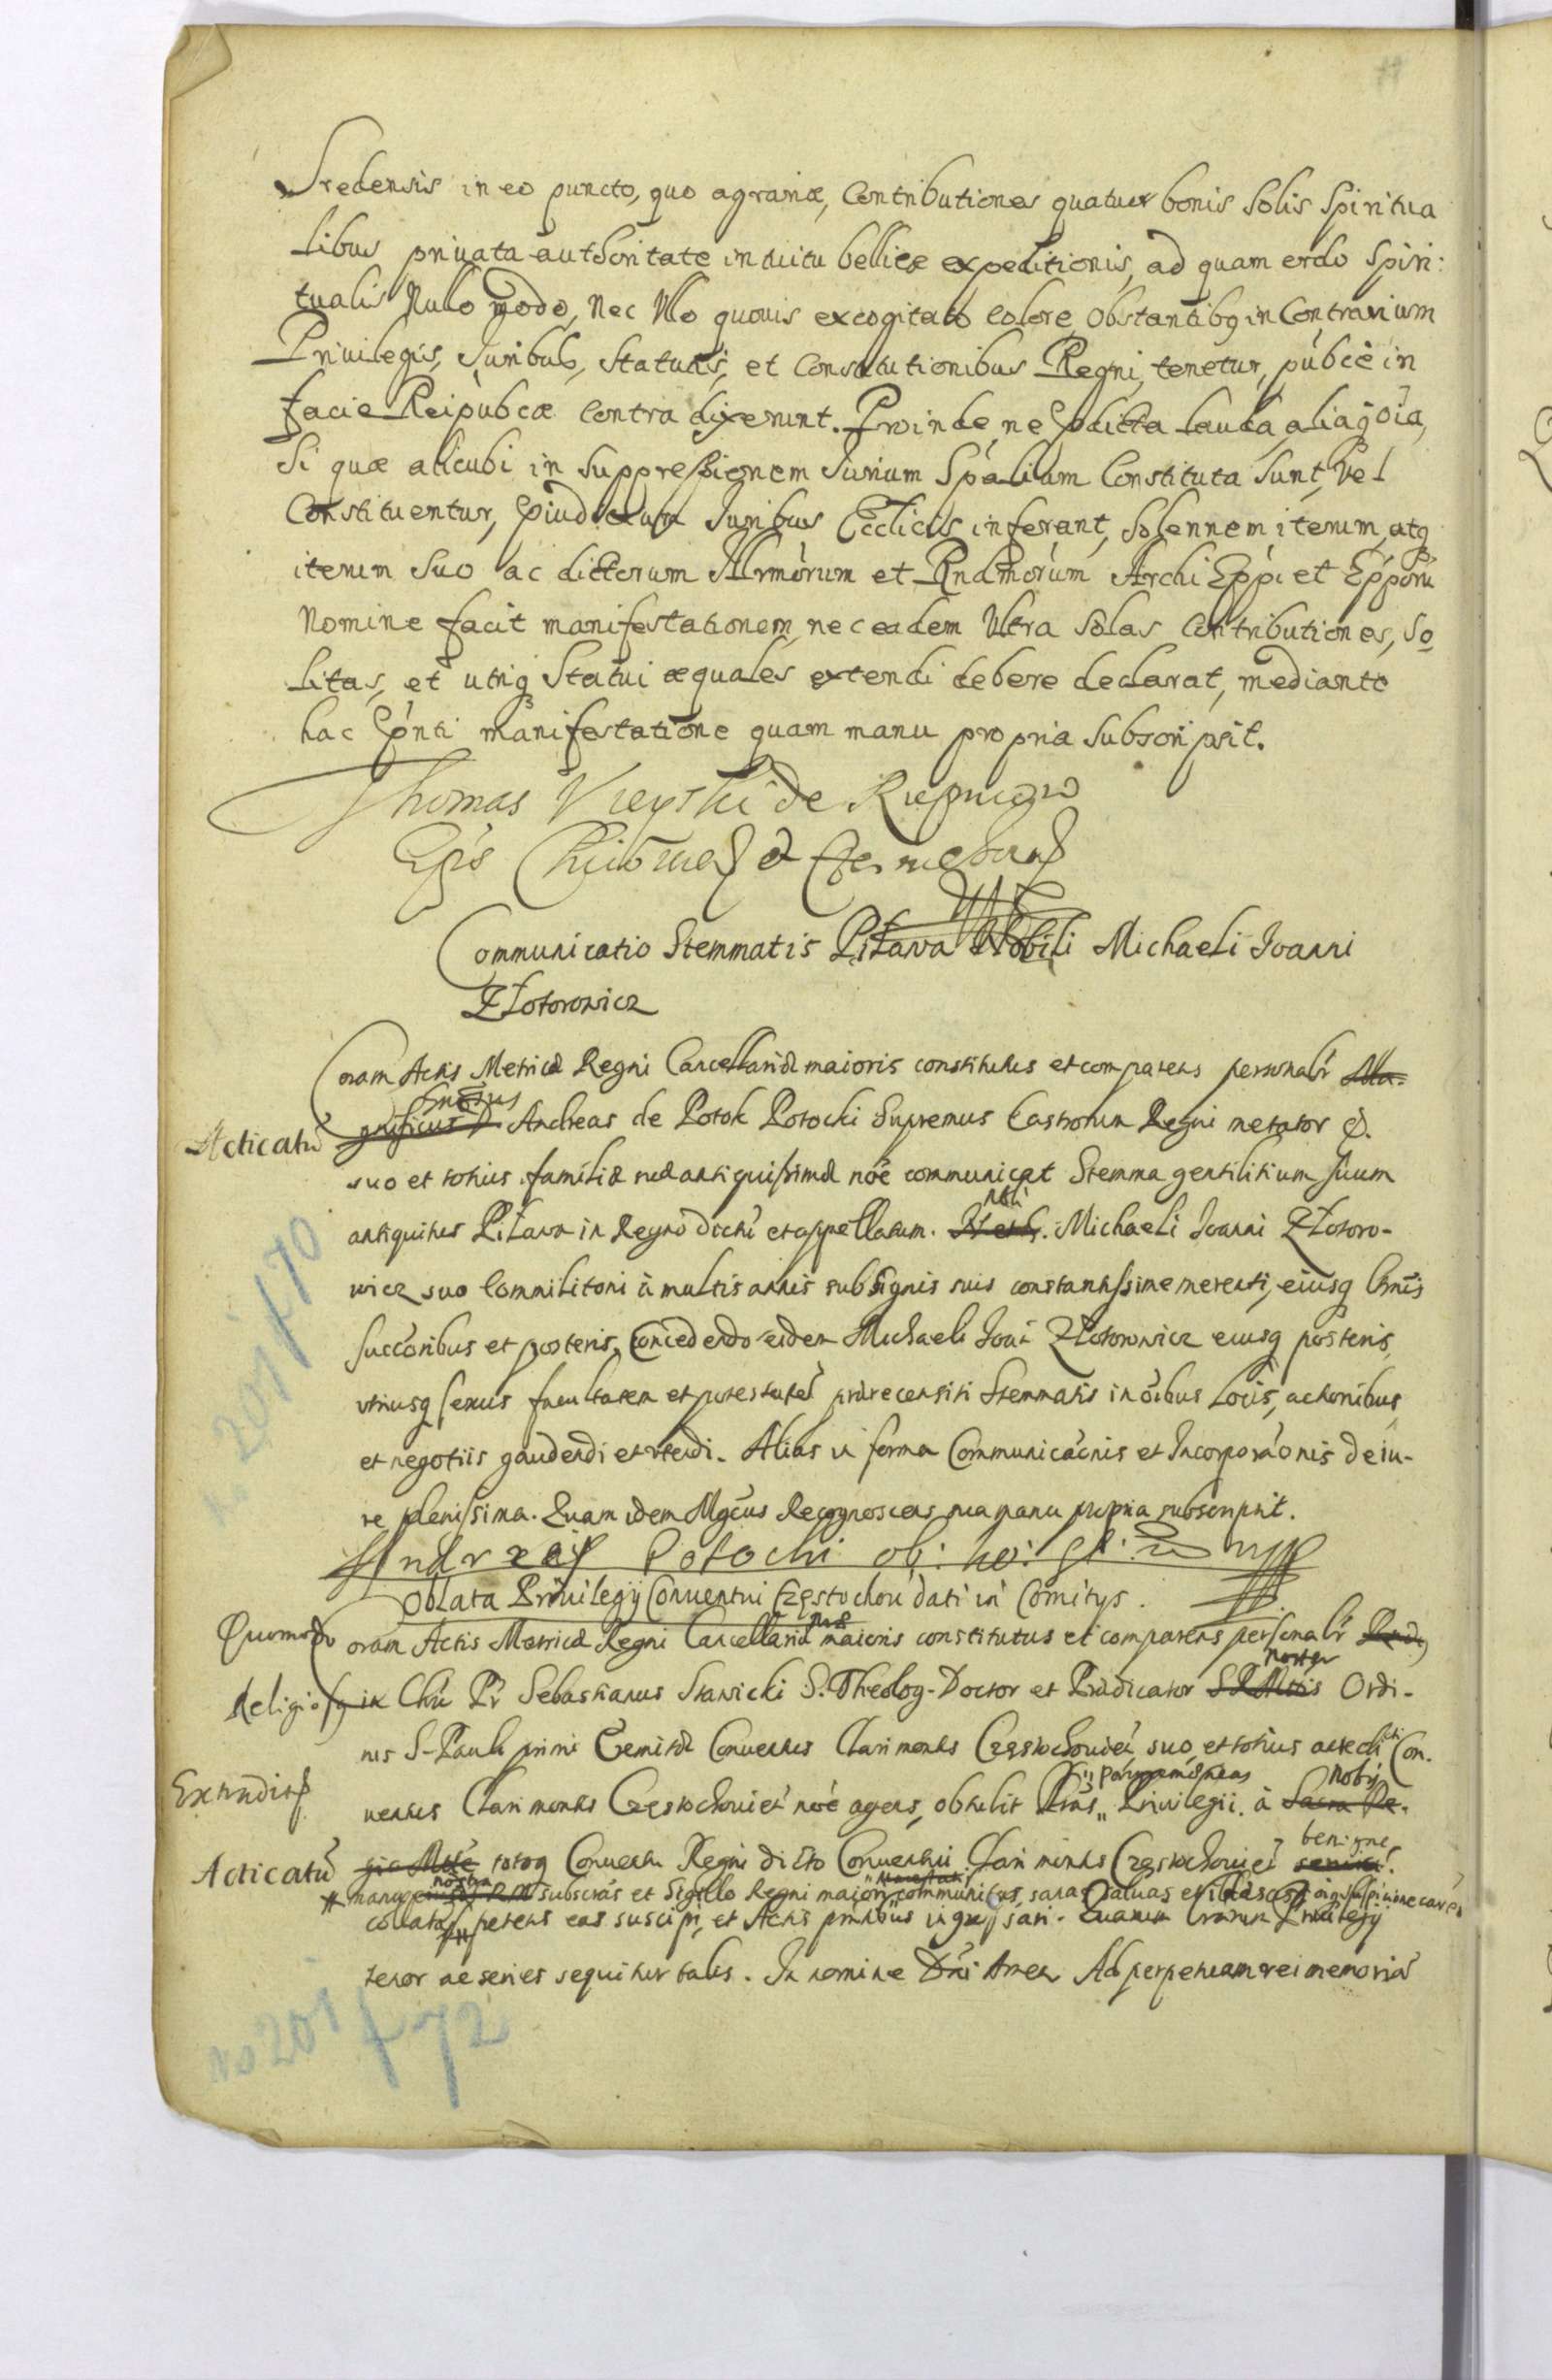 Sredensis in eo puncto, quo agrariæ, Contributiones quatuor bonis Solis Spiritua
libus privata authoritate intuitu bellicæ expeditionis, ad quam ordo Spiri:
tualis Nullo modo, Nec Ullo quovis excogitato Colore, Obstantibq in Contrarium
Privilegijs, Juribus, Statutis, et Constitutionibus Regni, tenetur, pubcè in
facie Reipubcæ Contra dixerunt. Proinde, ne Prdicta Lauda, aliaq oia,
Si quæ alicubi in Suppressionem Jurium Spalium Constituta Sunt, Vel
Constituentur, Juribus Ecclicis inferant, Solennem iterum, atq
iterum Suo ac dictorum Illrmorum et Rndmorum Archi Eppi et Epporu
Nomine facit manifestationem, nec eadem Ultra Solas Contributiones, So
litas, et utriq Statui æquales extendi debere declarat, mediante
hac Pnti manifestatione quam manu propria Subscripsit.
Thomas Ujeyski de Rupniow
Epus Chiioviens et Czerniechoviens
Communicatio Stemmatis Piława Nobili Michaeli Joanni
Złotorowicz
Coram Actis Metricæ Regni Cancellariæ maioris constitutus et comparens personalr Ma-
gnificus D. Andreas de Potok Potocki Supremus Castrorum Regni metator &.
Acticatu
suo et totius familiæ suæ antiquissimæ noe communicat Stemma gentilitium suum
nbli
antiquitus Piława in Regno dictu et appellatum. Michaeli Joanni Złotoro-
wicz suo Commilitoni à multis annis sub Signis suis constantissime merenti, eiusq
succoribus et posteris, Concedendo eidem Michaeli Joai Złotorowicz eiusq posteris,
utriusq sexus facultatem et potestate prærecensiti Stemmatis in oibus Locis, actionibus
et negotiis gaudendi et utendi. Alias in forma Communicaonis et Incorporaonis de iu-
re plenissima. Quam idem Mgcus Recognoscens sua manu propria subscripsit.
Andrzey Potocki ob: wo: K:
Oblata Privilegij Conventui Częstochou dati in Comitijs.
Quomodo Coram Actis Metricæ Regni Cancellariæ maioris constitutus et comparens personalr Rndq
noster
Religiosq in Chro Pr Sebastianus Stawicki S. Theolog. Doctor et Prædicator S R Mttis Ordi-
nis S. Pauli primi Eremitæ Conventus Clari montis Częstochouieñ, suo, et totius antedicti Con-
pargameneas nobis
Extraditq
ventus Clari montis Częstochouieñ noe agens, obtulit Lras Privilegii à Sacra Re-
benigne
Acticatu gia Mtte totoq Conventu Regni dicto Conventui Clari montis Częstochouieñ
manu nostra subscras et Sigillo Regni maiori communitas, sanas salvas et illæsas omniq suspicione caren
collatas petens eas suscipi, et Actis pnntibus ingrossari. Quarum Lrarum Privilegij
tenor ac series sequitur talis. In nomine Dni Amen Ad perpetuam rei memoria
no 201 f 70
no 201 f 72